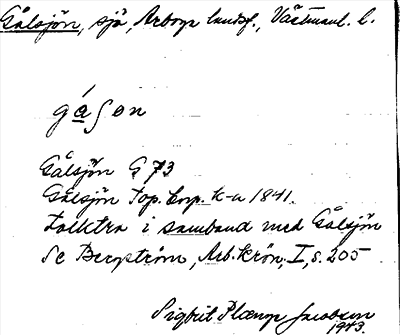 Gålsjön, sjö, Arboga landsf., Västmanl. l.
gá̱ʃon
Gålsjön G 73
Gålsjön Top. corp. k-a 1841.
Folktro i samband med Gålsjön
Se Bergström, Arb. krön, I, s. 205
Sigbrit Plænge Jacobson
1943.